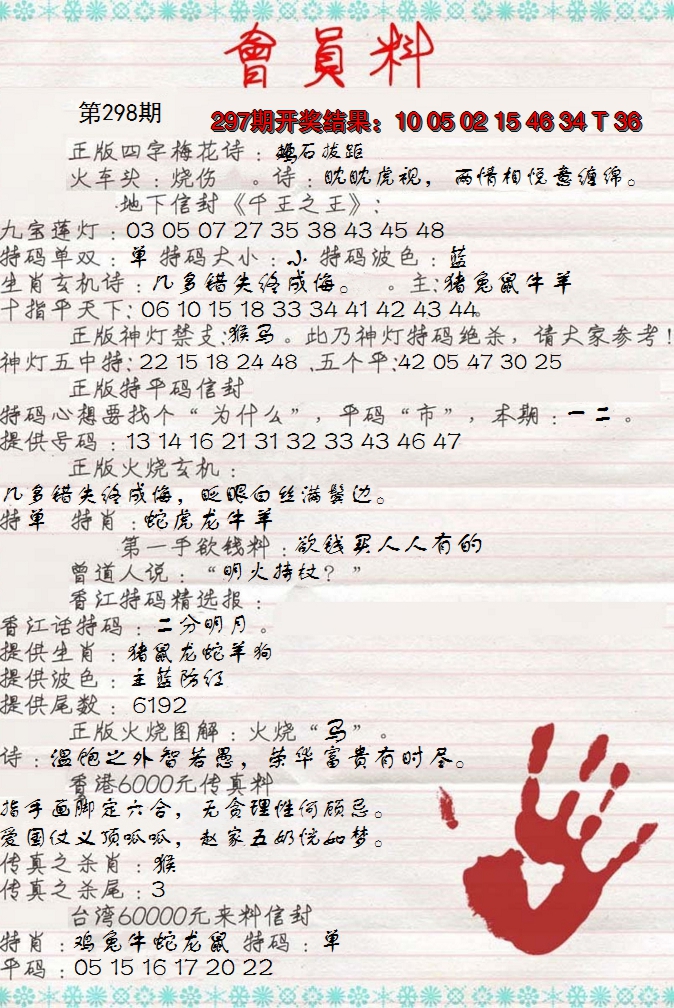 會員料
第298期
297期开奖结果：10 05 02 15 46 34 T 36
正版四字梅花诗：石拔距
火车头：烧伤 。诗：眈眈虎视，两情相悦意缠绵。
地下信封《千王之王》：
九宝莲灯：03 05 07 27 35 38 43 45 48
特码单双：单 特码大小：小 特码波色：蓝
生肖玄机诗：几多错失终成悔。 。主：猪兔鼠牛羊
十指平天下：06 10 15 18 33 34 41 42 43 44。
正版神灯禁支：猴马。此乃神灯特码绝杀，请大家参考！
神灯五中特：22 15 18 24 48 、五个平：42 05 47 30 25
正版特平码信封
特码心想要找个“为什么”，平码“市”，本期：一二。
提供号码：13 14 16 21 31 32 33 43 46 47
正版火烧玄机：
几多错失终成悔，眨眼白丝满鬓边。
特单 特肖：蛇虎龙牛羊
第一手欲钱料：欲钱买人人有的
曾道人说：“明火持杖？”
香江特码精选报：
香江话特码：二分明月。
提供生肖：猪鼠龙蛇羊狗
提供波色：主蓝防红
提供尾数：6192
正版火烧图解：火烧“马”。
诗：温饱之外智若愚，荣华富贵有时尽。
香港6000元传真料
指手画脚定六合，无贪理性何顾忌。
爱国仗义顶呱呱，赵家五奶恍如梦。
传真之杀肖：猴
传真之杀尾：3
台湾60000元来料信封
特肖：鸡兔牛蛇龙鼠 特码：单
平码：05 15 16 17 20 22